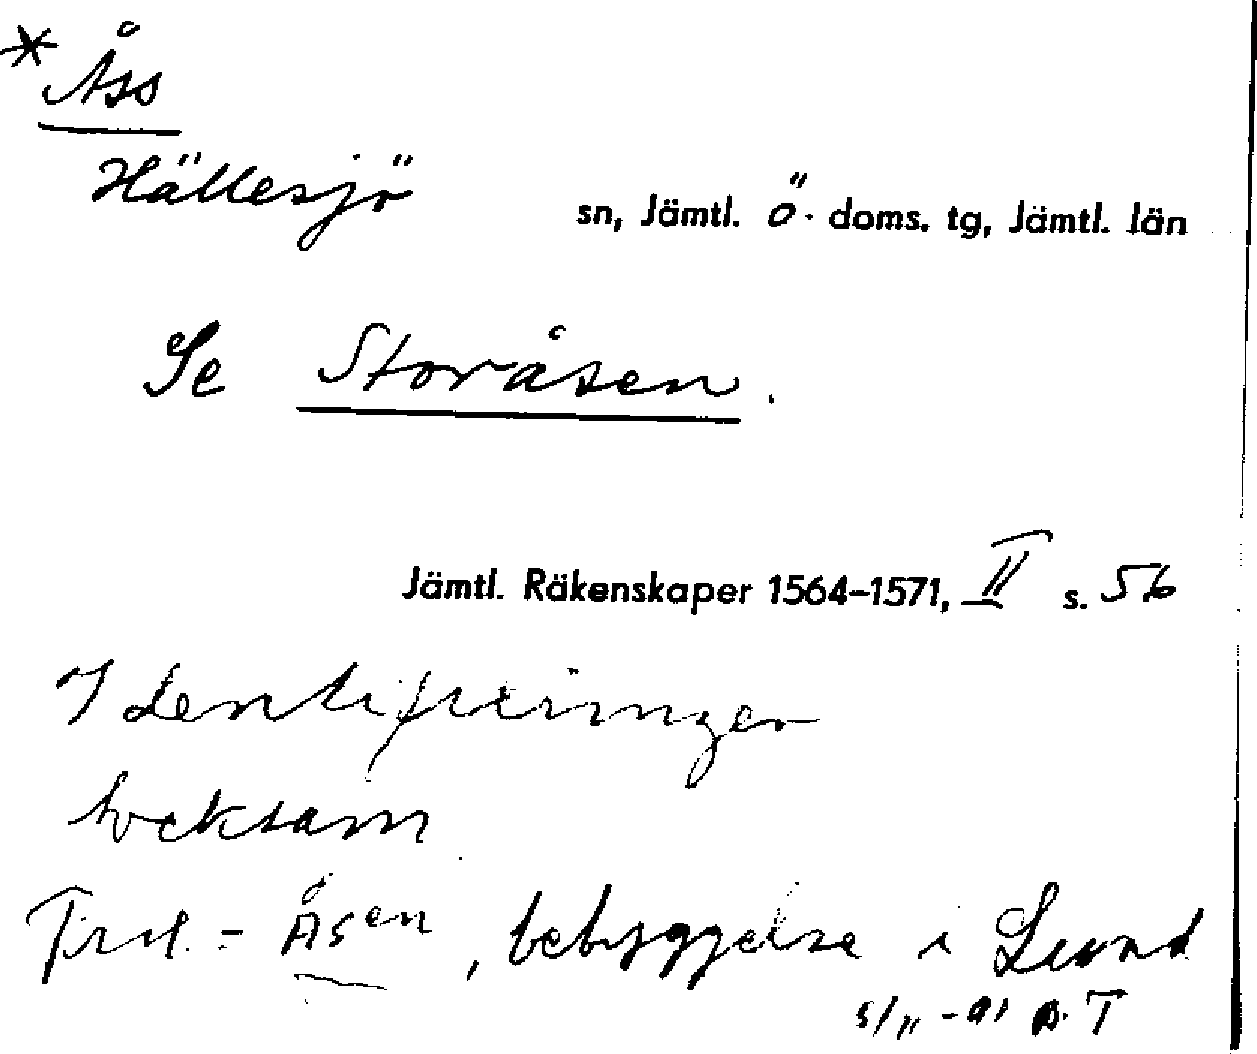 * Åss
Hällesjö sn, Jämtl. Ö. doms. tg, Jämtl. län
Se Storåsen.
Jämtl. Räkenskaper 1564-1571, II s. 56
Identifieringen
tveksam
Trol. = Åsen, bebyggelse i Lund
5/11 -91 A. T